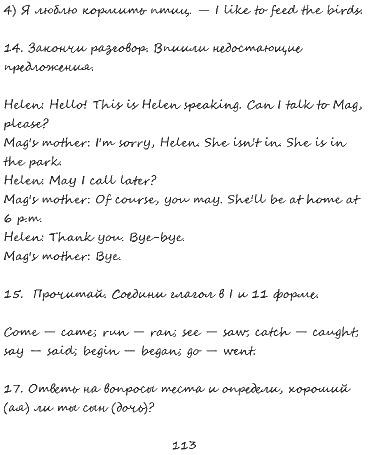 4) Я люблю кормить птиц. — I like to feed the birds.
14. Закончи разговор. Впиши недостающие
предложения.
Helen: Hello! This is Helen speaking. Can I talk to Mag,
please?
Mag's mother: I'm sorry, Helen. She isn't in. She is in
the park.
Helen: May I call later?
Mag's mother: Of course, you may. She'll be at home at
6 p.m.
Helen: Thank you. Bye-bye.
Mag's mother: Bye.
15. Прочитай. Соедини глагол в I и 11 форме.
Come — came; run — ran; see — saw; catch — caught;
say — said; begin — began; go — went.
17. Ответь на вопросы теста и определи, хороший
(ая) ли ты сын (дочь)?
113